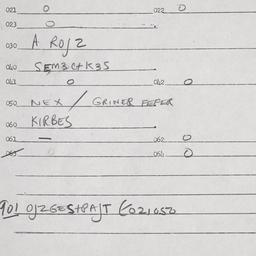 021 0 022 0
023 0
030 A ROJZ
040 SEM3C+K3S
041 0 042 0
050 NEX / GRINER FEFER
060 KIRBES
061 — 062 0
063 0 064 0
901 OJZGES+PAJT E021050